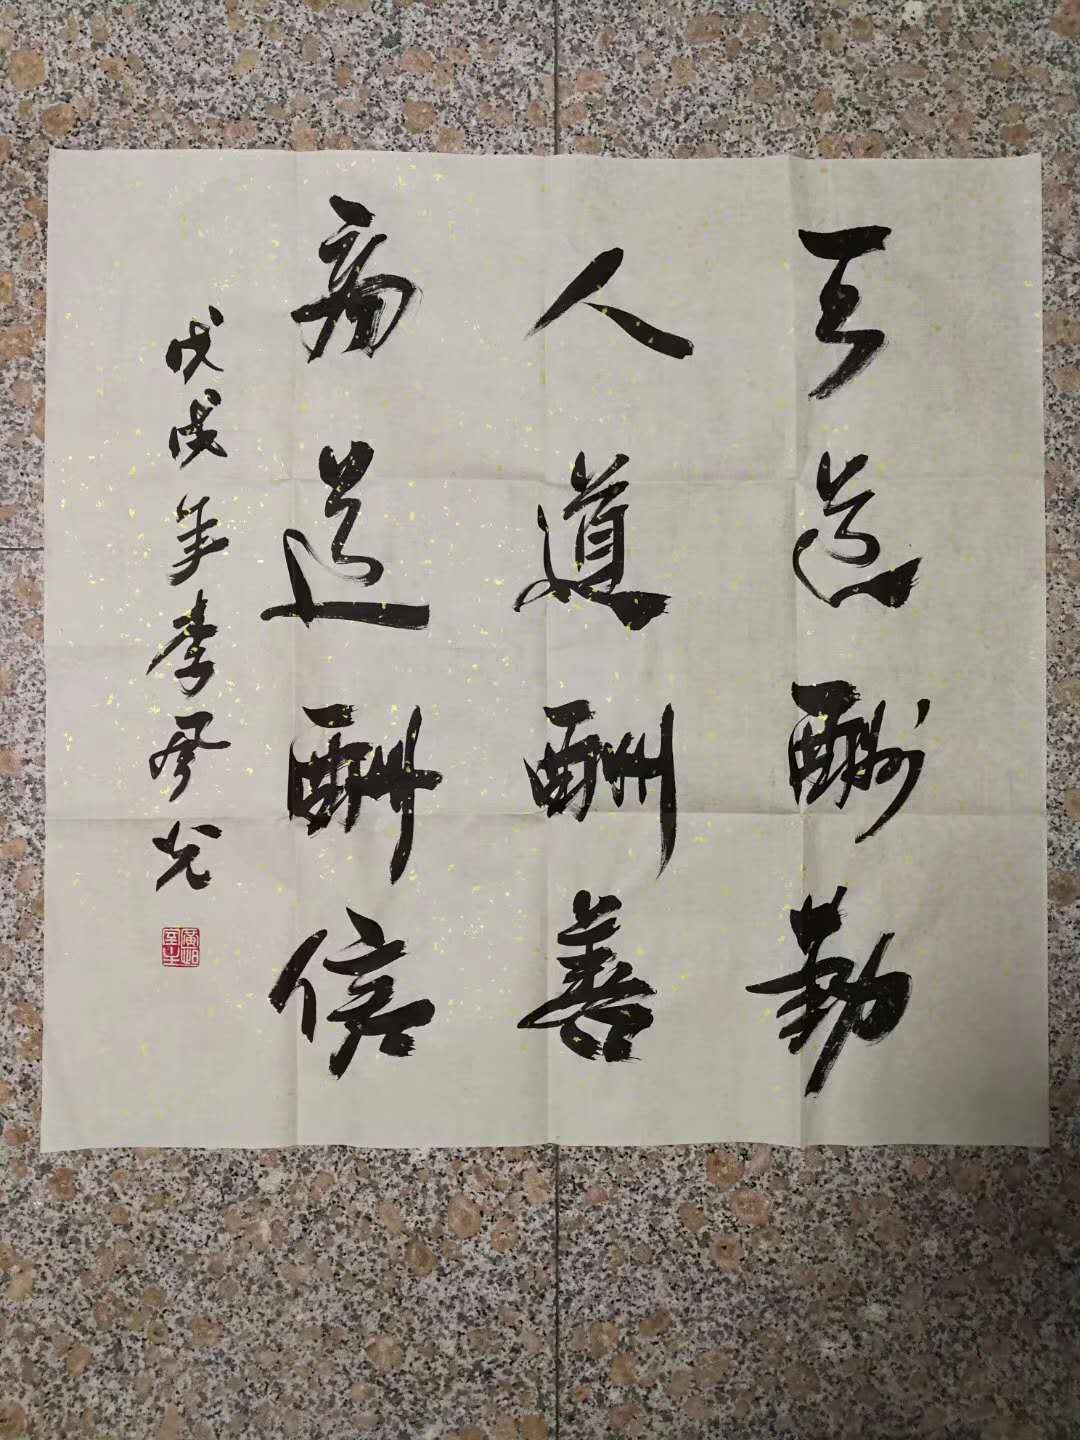 天道酬勤
人道酬善
商道酬信
戊戌年李光